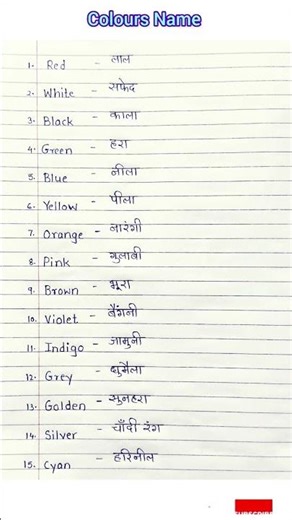 Colours Name
1. Red - लाल
2. White - सफेद
3. Black - काला
4. Green - हरा
5. Blue - नीला
6. Yellow - पीला
7. Orange - नारंगी
8. Pink - गुलाबी
9. Brown - भूरा
10. Violet - बैंगनी
11. Indigo - जामुनी
12. Grey - धुमैला
13. Golden - सुनहरा
14. Silver - चाँदी रंग
15. Cyan - हरिनील